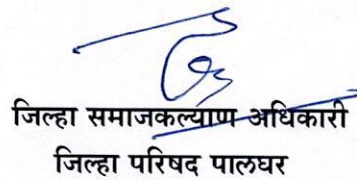 जिल्हा समाजकल्याण अधिकारी
जिल्हा परिषद पालघर